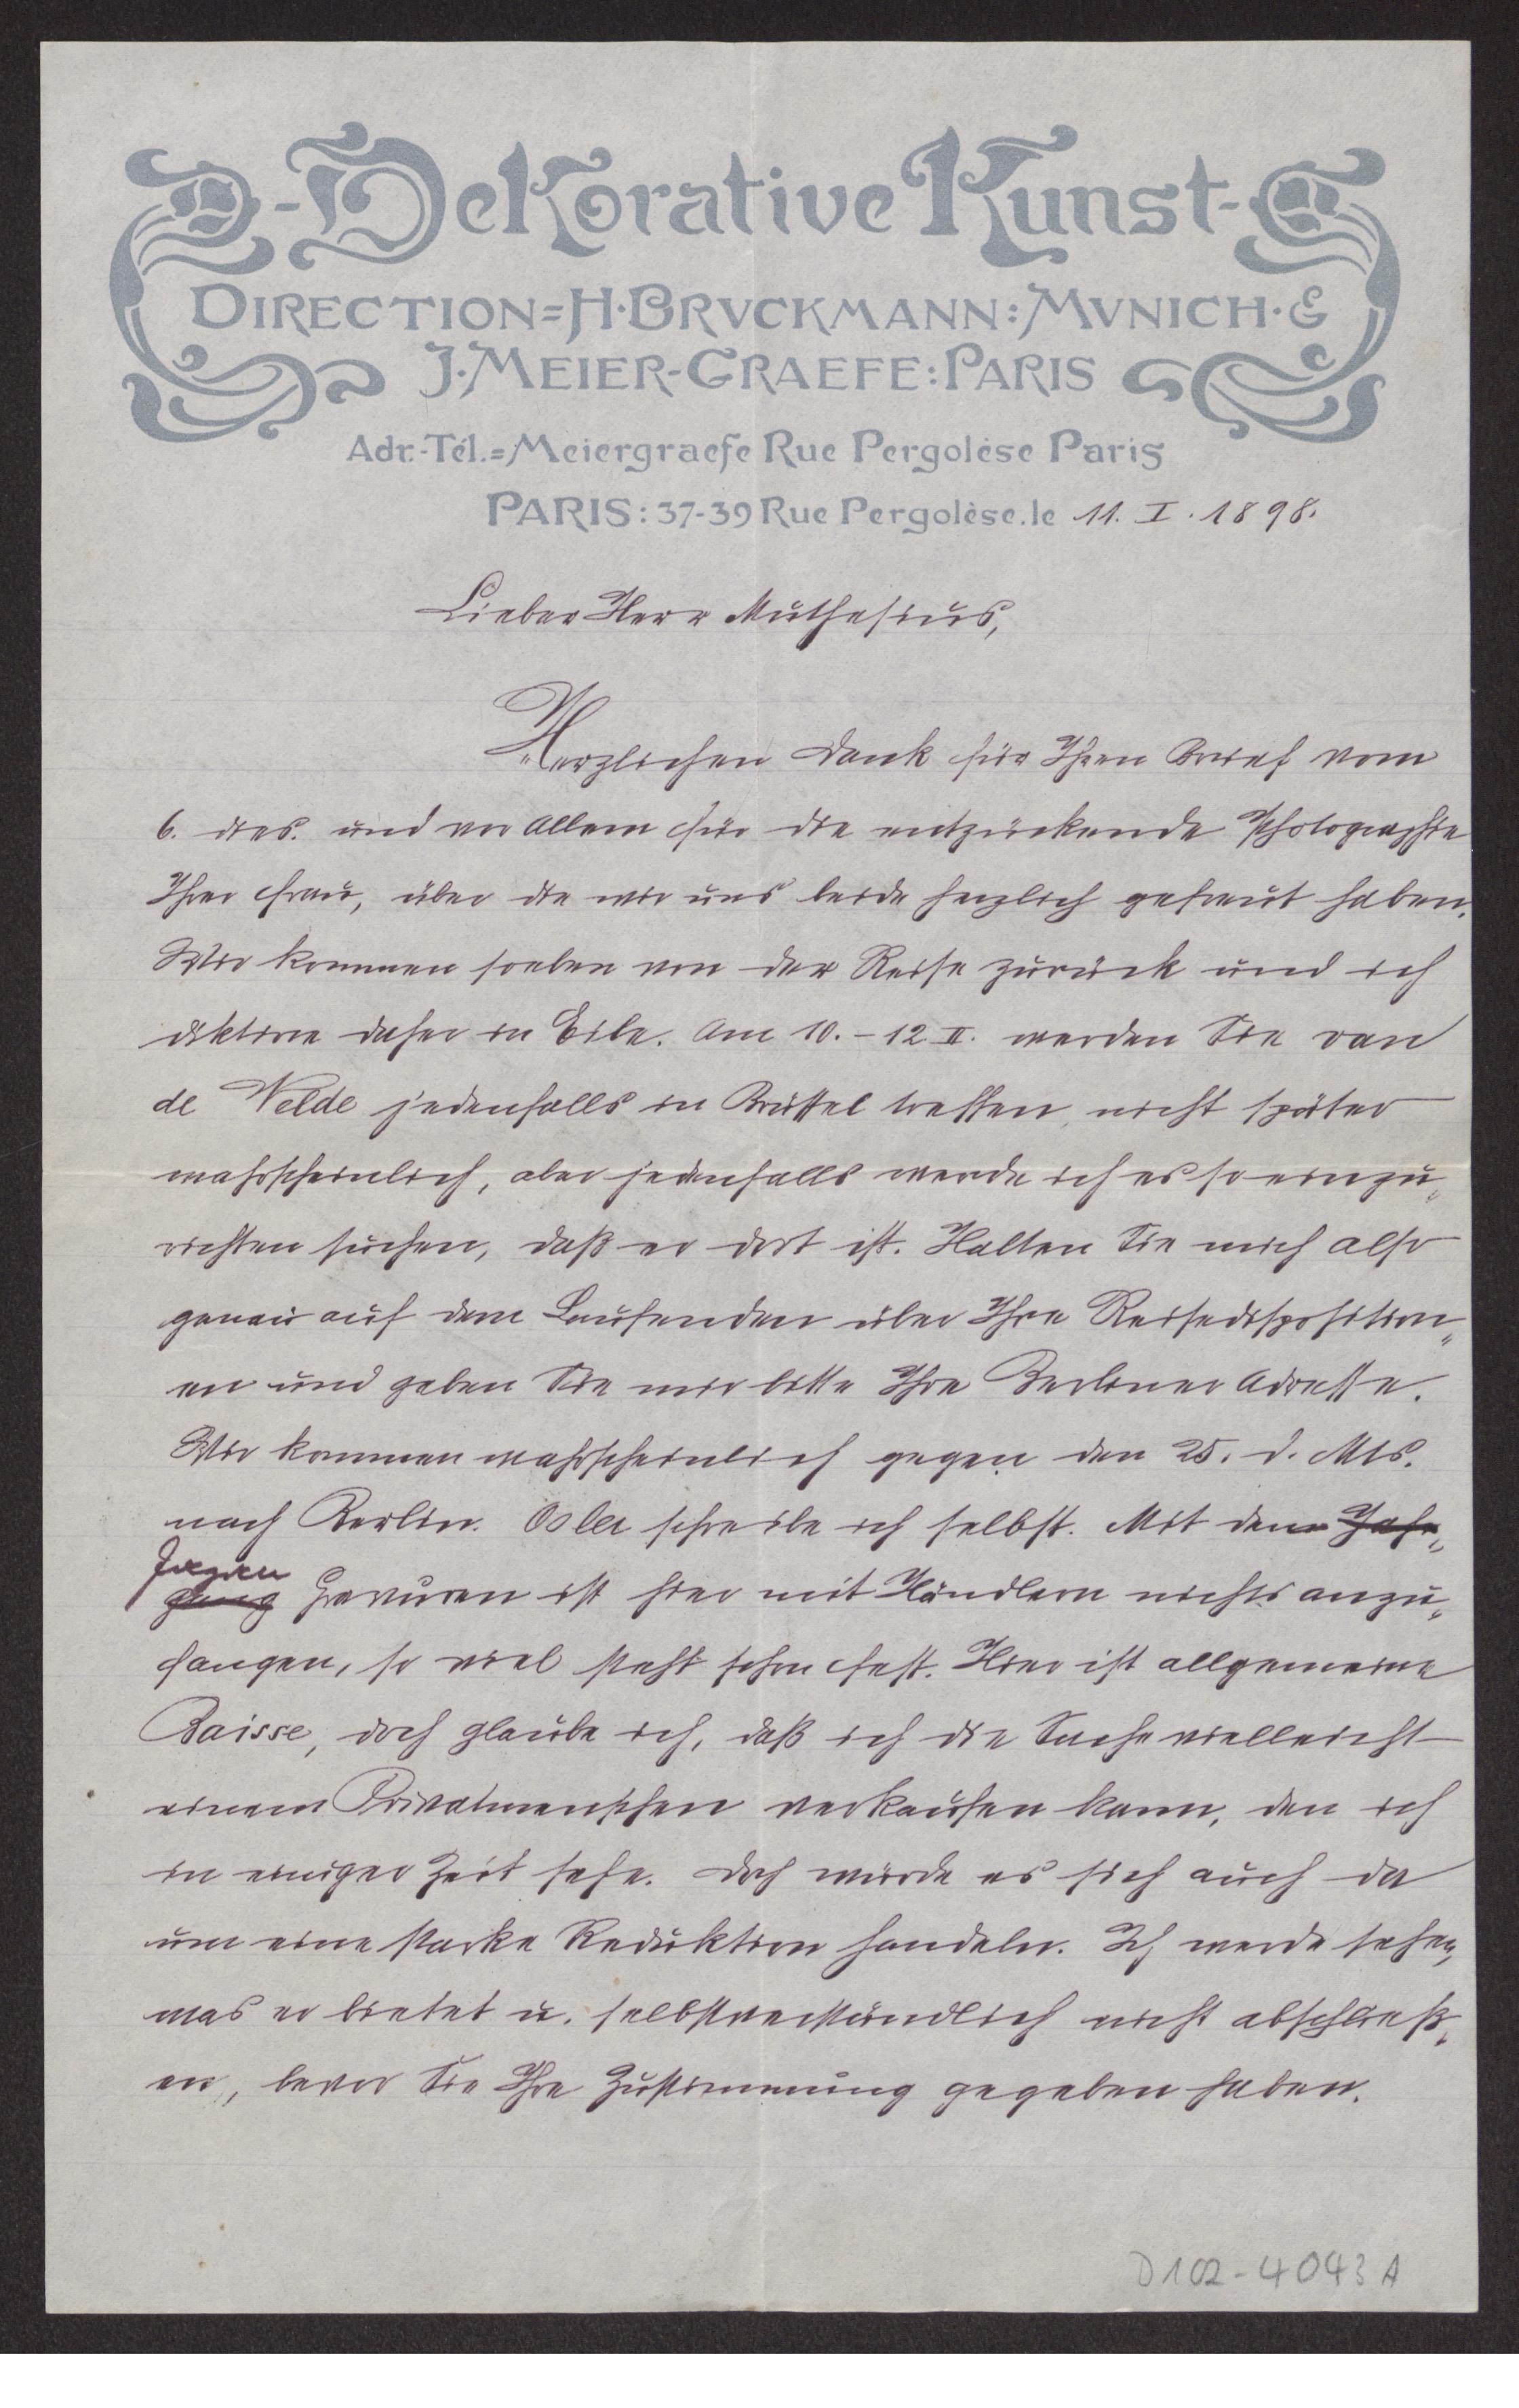 Dekorative Kunst
DIRECTION=H·BRVCKMANN:MVNICH·&
J·MEIER-GRAEFE:PARIS
Adr.-Tél.=Meiergraefe Rue Pergolèse Paris
PARIS: 37-39 Rue Pergolèse. le 11. I. 1898.
Lieber Herr Muthesius,
Herzlichen Dank für Ihren Brief vom
6. dies. und vor Allem für die entzückende Photographie
Ihrer Frau, über die wir uns beide herzlich gefreut haben.
Wir kommen soeben von der Reise zurück und ich
diktire daher in Eile. Am 10.-12 II. werden Sie van
de Velde jedenfalls in Brüssel treffen, nicht später
wahrscheinlich, aber jedenfalls werde ich es so einzu„
richten suchen, daß er dort ist. Halten Sie mich also
genau auf dem Laufenden über Ihre Reisedisposition„
en und geben Sie mir bitte Ihre Berliner Adresse.
Wir kommen wahrscheinlich gegen den 25. d. Mts.
nach Berlin. Osler schreibe ich selbst. Mit den
Gravuren ist hier mit Händlern nichts anzu„
fangen, so viel steht schon fest. Hier ist allgemeine
Baisse, doch glaube ich, daß ich die Sache vielleicht
einem Privatmenschen verkaufen kann, den ich
in einiger Zeit sehe. Doch würde es sich auch da
um eine starke Reduktion handeln. Ich werde sehen,
was er bietet u. selbstverständlich nicht abschließ„
en, bevor Sie Ihre Zustimmung gegeben haben.
D102-4043 A